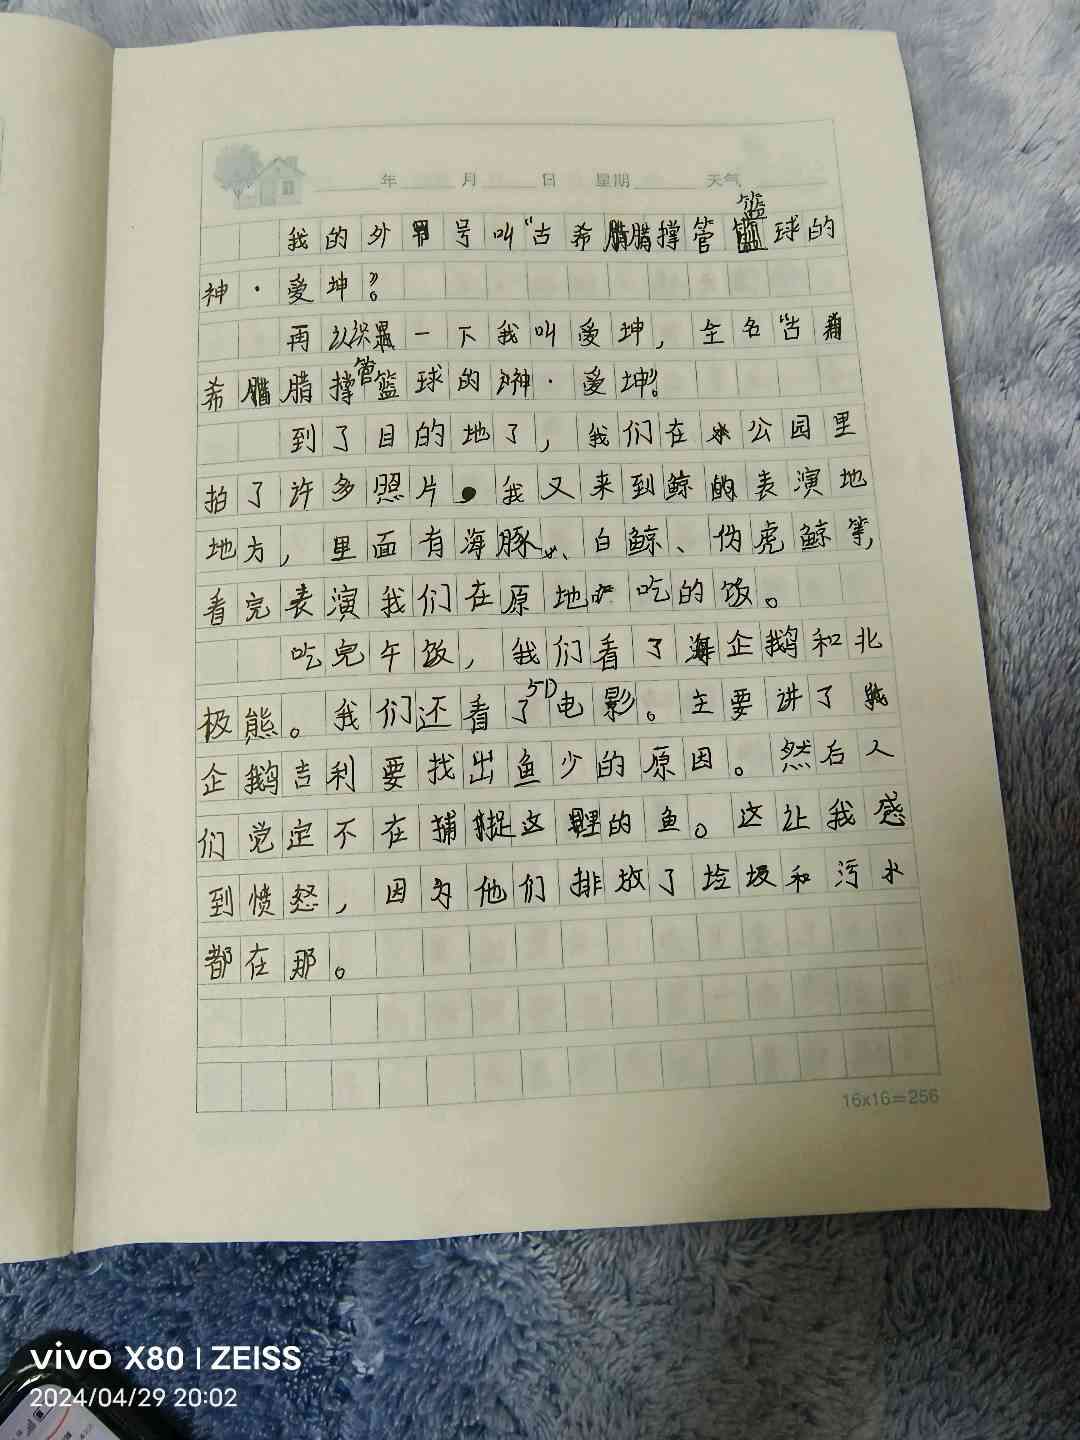 年 月 日 星期 天气
我的外号叫“古希腊撑管篮球的
神·爱坤”。
再认识一下我叫爱坤，全名“古
希腊撑管篮球的神·爱坤”。
到了目的地了，我们在公园里
拍了许多照片。我又来到鲸的表演地
地方，里面有海豚、白鲸、伪虎鲸等，
看完表演我们在原地吃的饭。
吃完午饭，我们看了海企鹅和北
极熊。我们还看了5D电影。主要讲了
企鹅吉利要找出鱼少的原因。然后人
们党定不在捕捉这里的鱼。这让我感
到愤怒，因为他们排放了垃圾和污水
都在那。
16x16=256
vivo X80 | ZEISS
2024/04/29 20:02